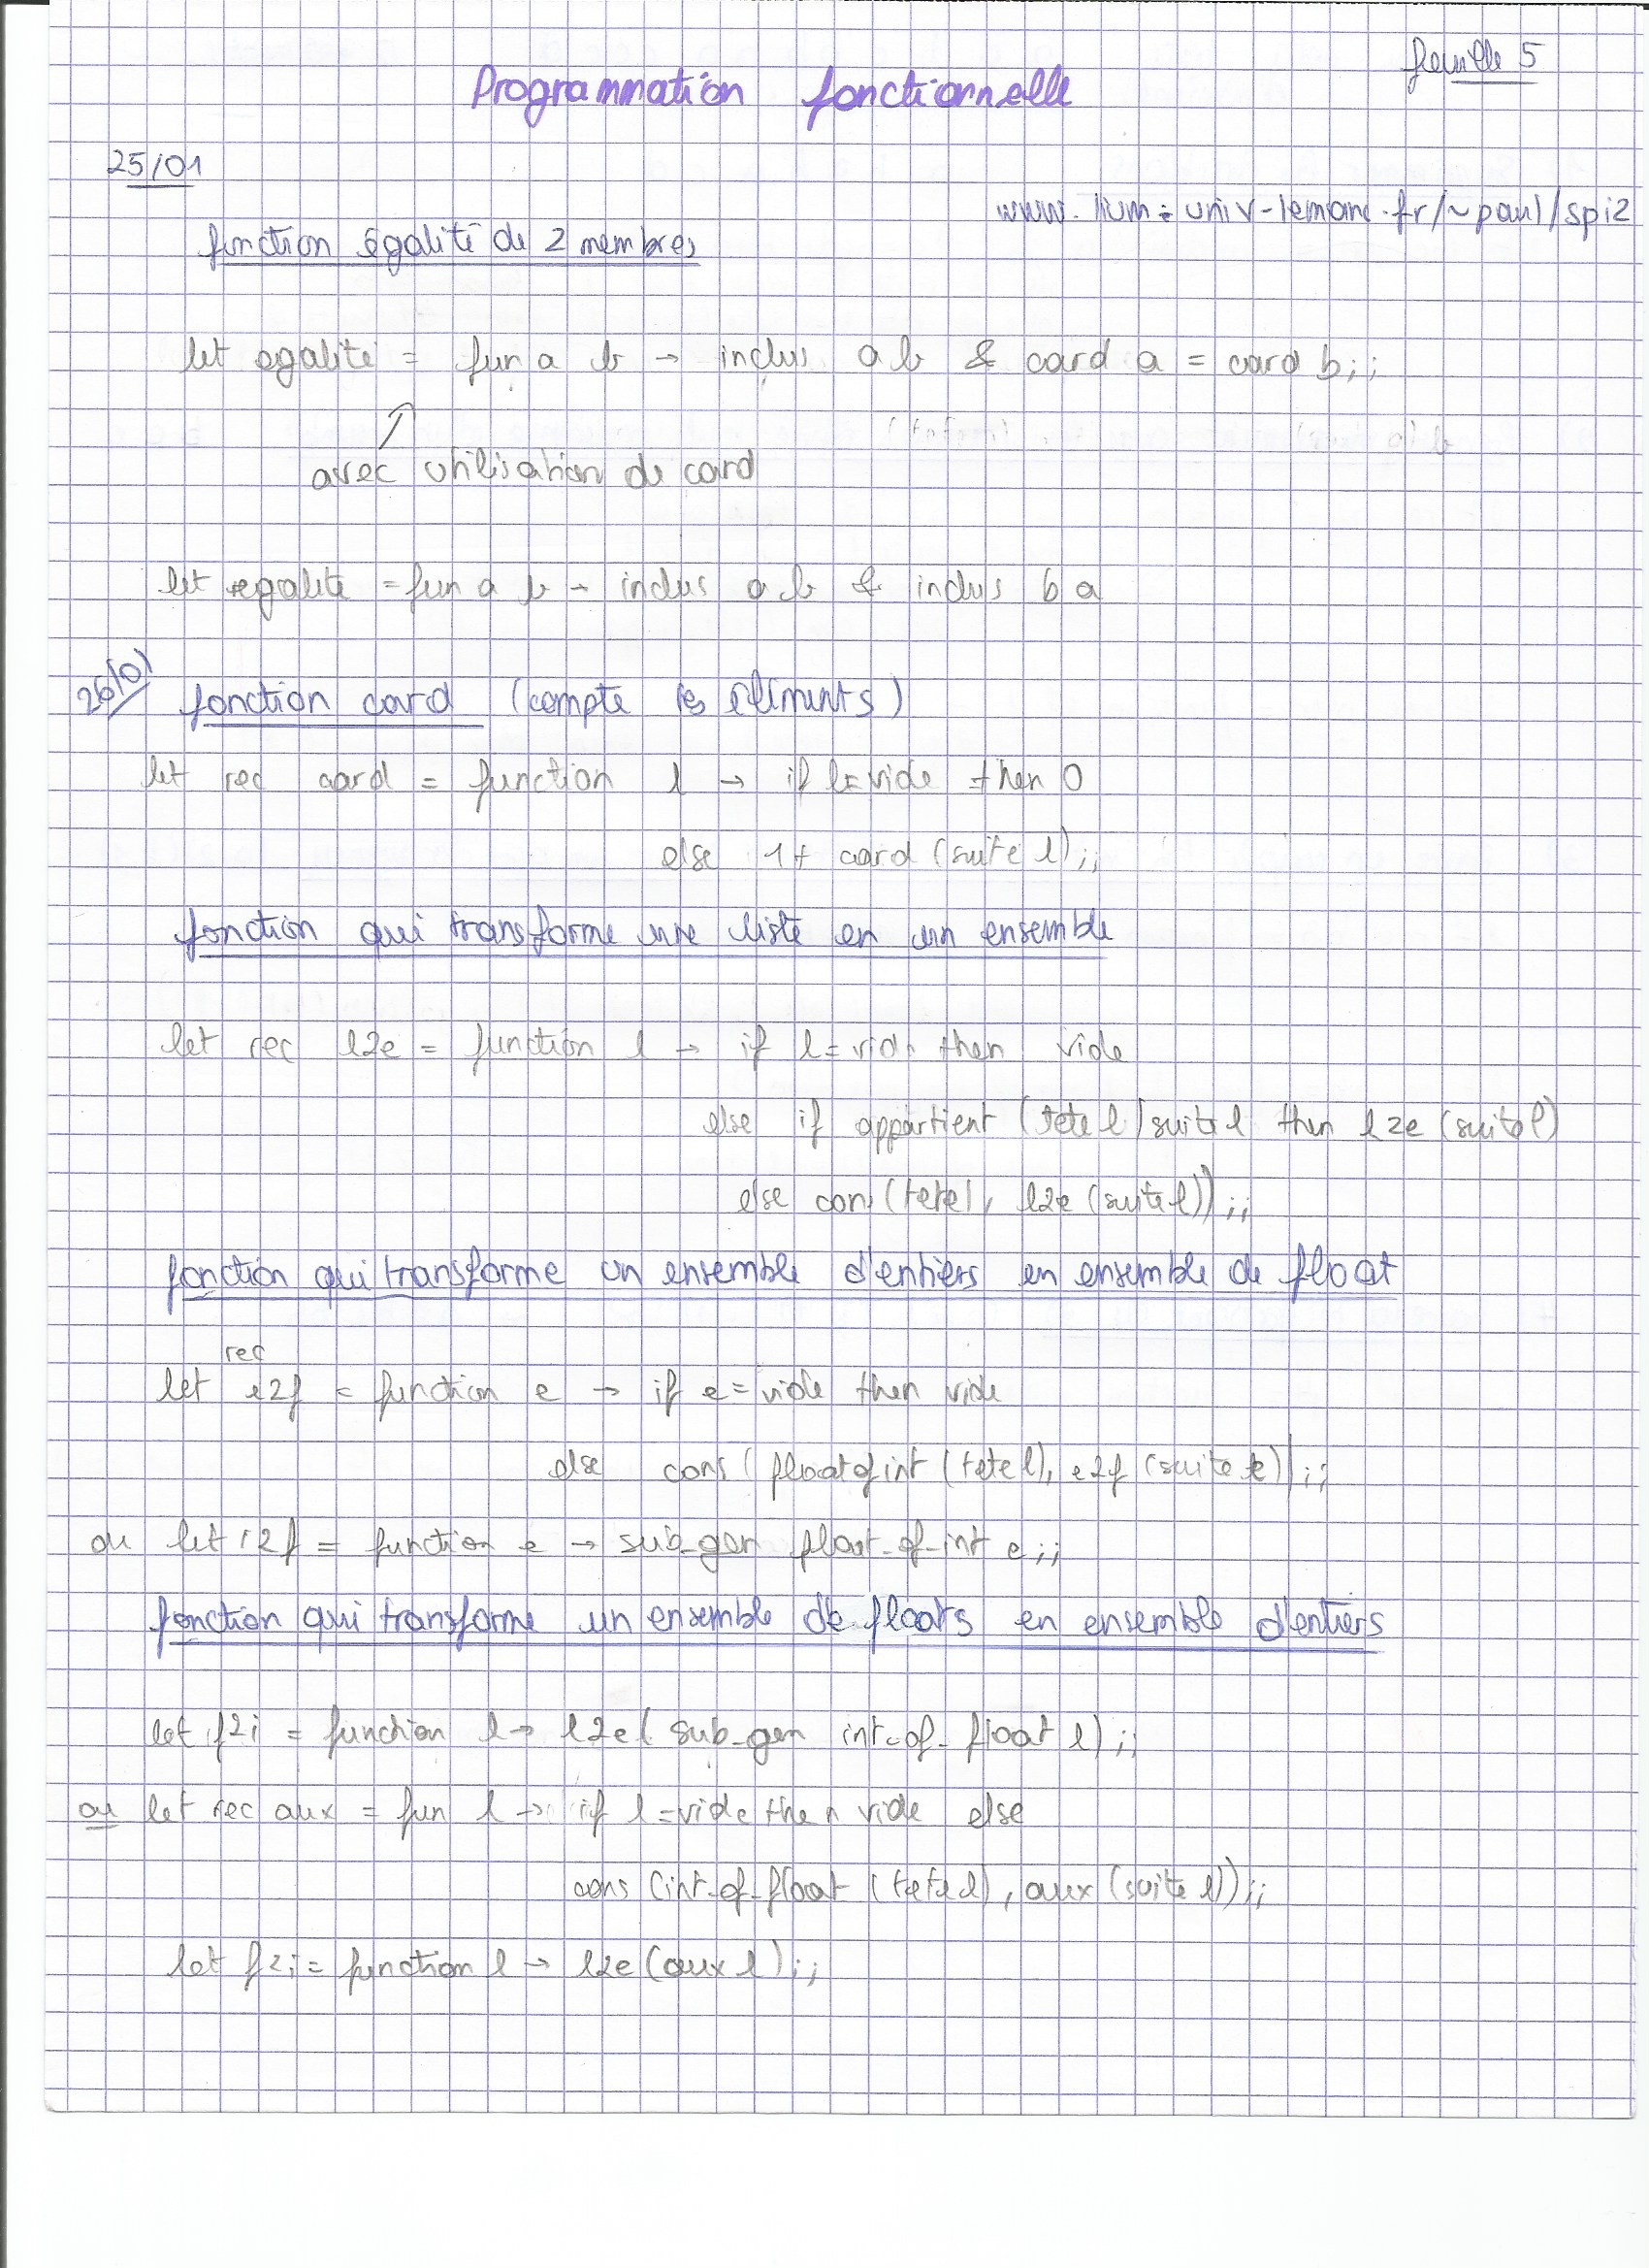 feuille 5
Programmation fonctionnelle
25/01
www.lium.univ-lemans.fr/~paul/spi2
function égalité de 2 membres
let egalité = fun a b → inclus a b & card a = card b;;
avec utilisation de card
let egalite = fun a b → inclus a b & inclus b a
26/01
fonction card (compte les éléments)
let rec card = function l → if l=vide then 0
else 1+ card (suite l);;
fonction qui transforme une liste en un ensemble
let rec l2e = function l → if l=vide then vide
else if appartient (tete l) suite l then l2e (suite l)
else cons (tete l, l2e (suite l));;
fonction qui transforme un ensemble d'entiers en ensemble de float
rec
let e2f = function e → if e=vide then vide
else cons (float of int (tete l), e2f (suite e));;
ou let i2f = function e → sub_gen float_of_int e;;
fonction qui transforme un ensemble de floats en ensemble d'entiers
let f2i = function l → l2e( sub_gen int_of_float l);;
ou let rec aux = fun l → if l=vide then vide else
cons (int_of_float (tete l), aux (suite l));;
let f2i = function l → l2e (aux l);;